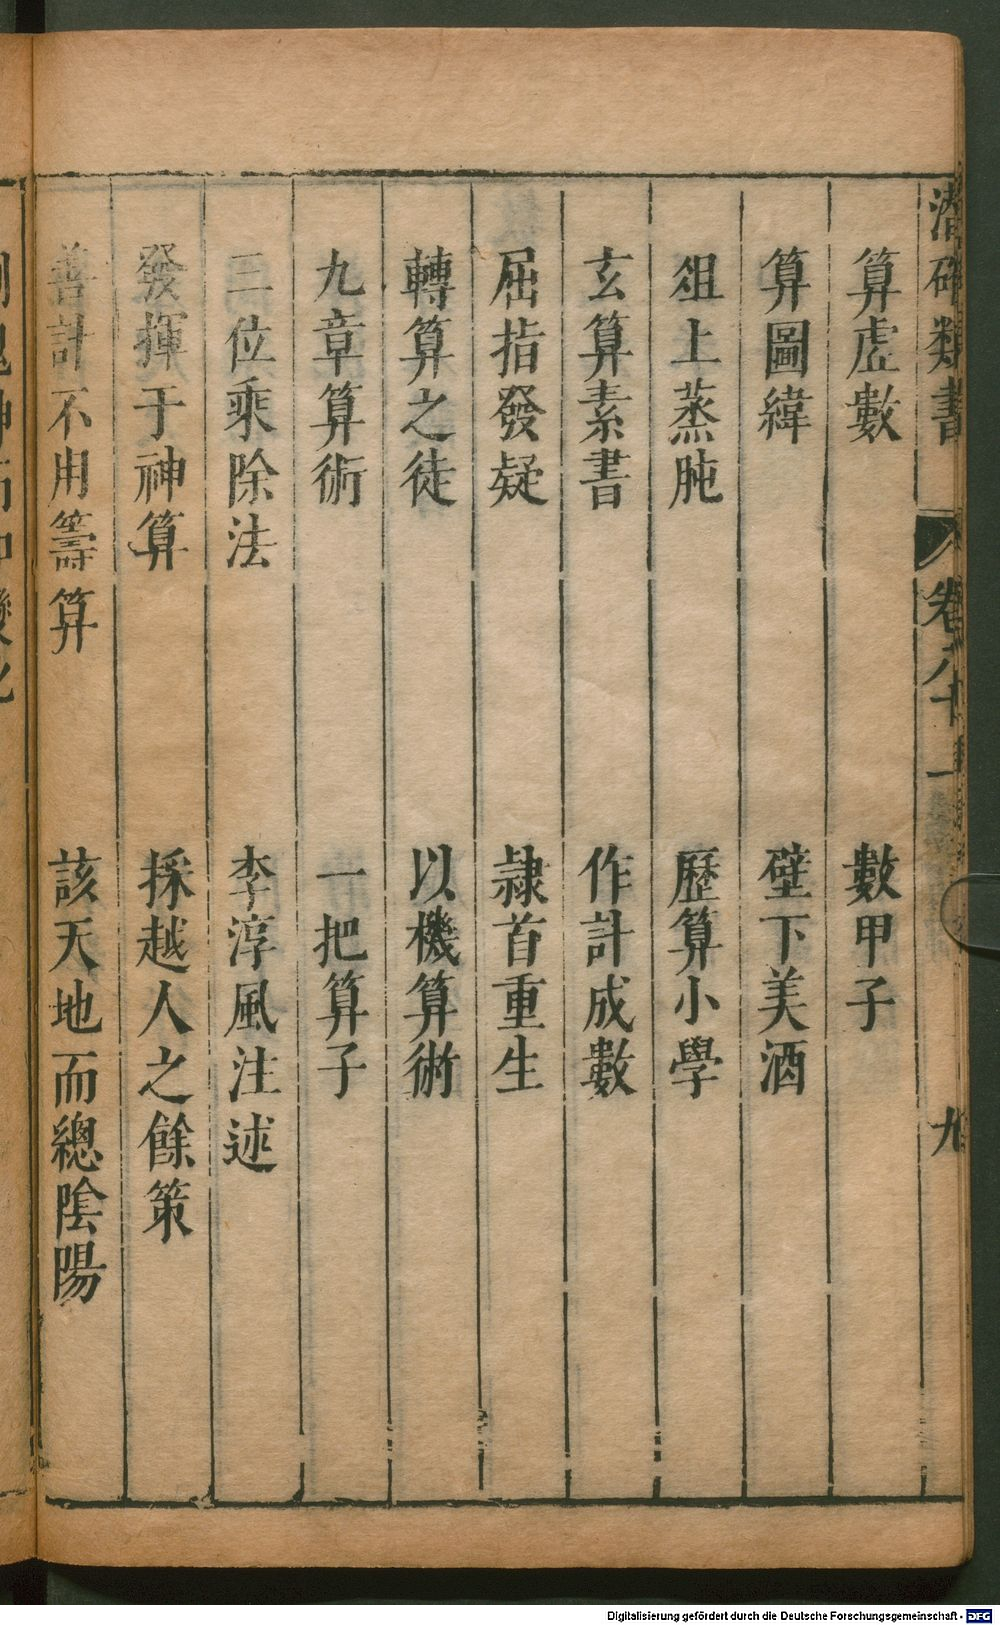 潛確類書 卷八十一 九
算虛數 數甲子
算圖緯 壁下美酒
俎上蒸肫 歷算小學
玄算素書 作計成數
屈指發疑 隷首重生
轉算之徒 以機算術
九章算術 一把算子
三位乘除法 李淳風注述
發揮于神算 採越人之餘策
善計不用籌算 該天地而總陰陽
Digitalisierung gefördert durch die Deutsche Forschungsgemeinschaft - DFG